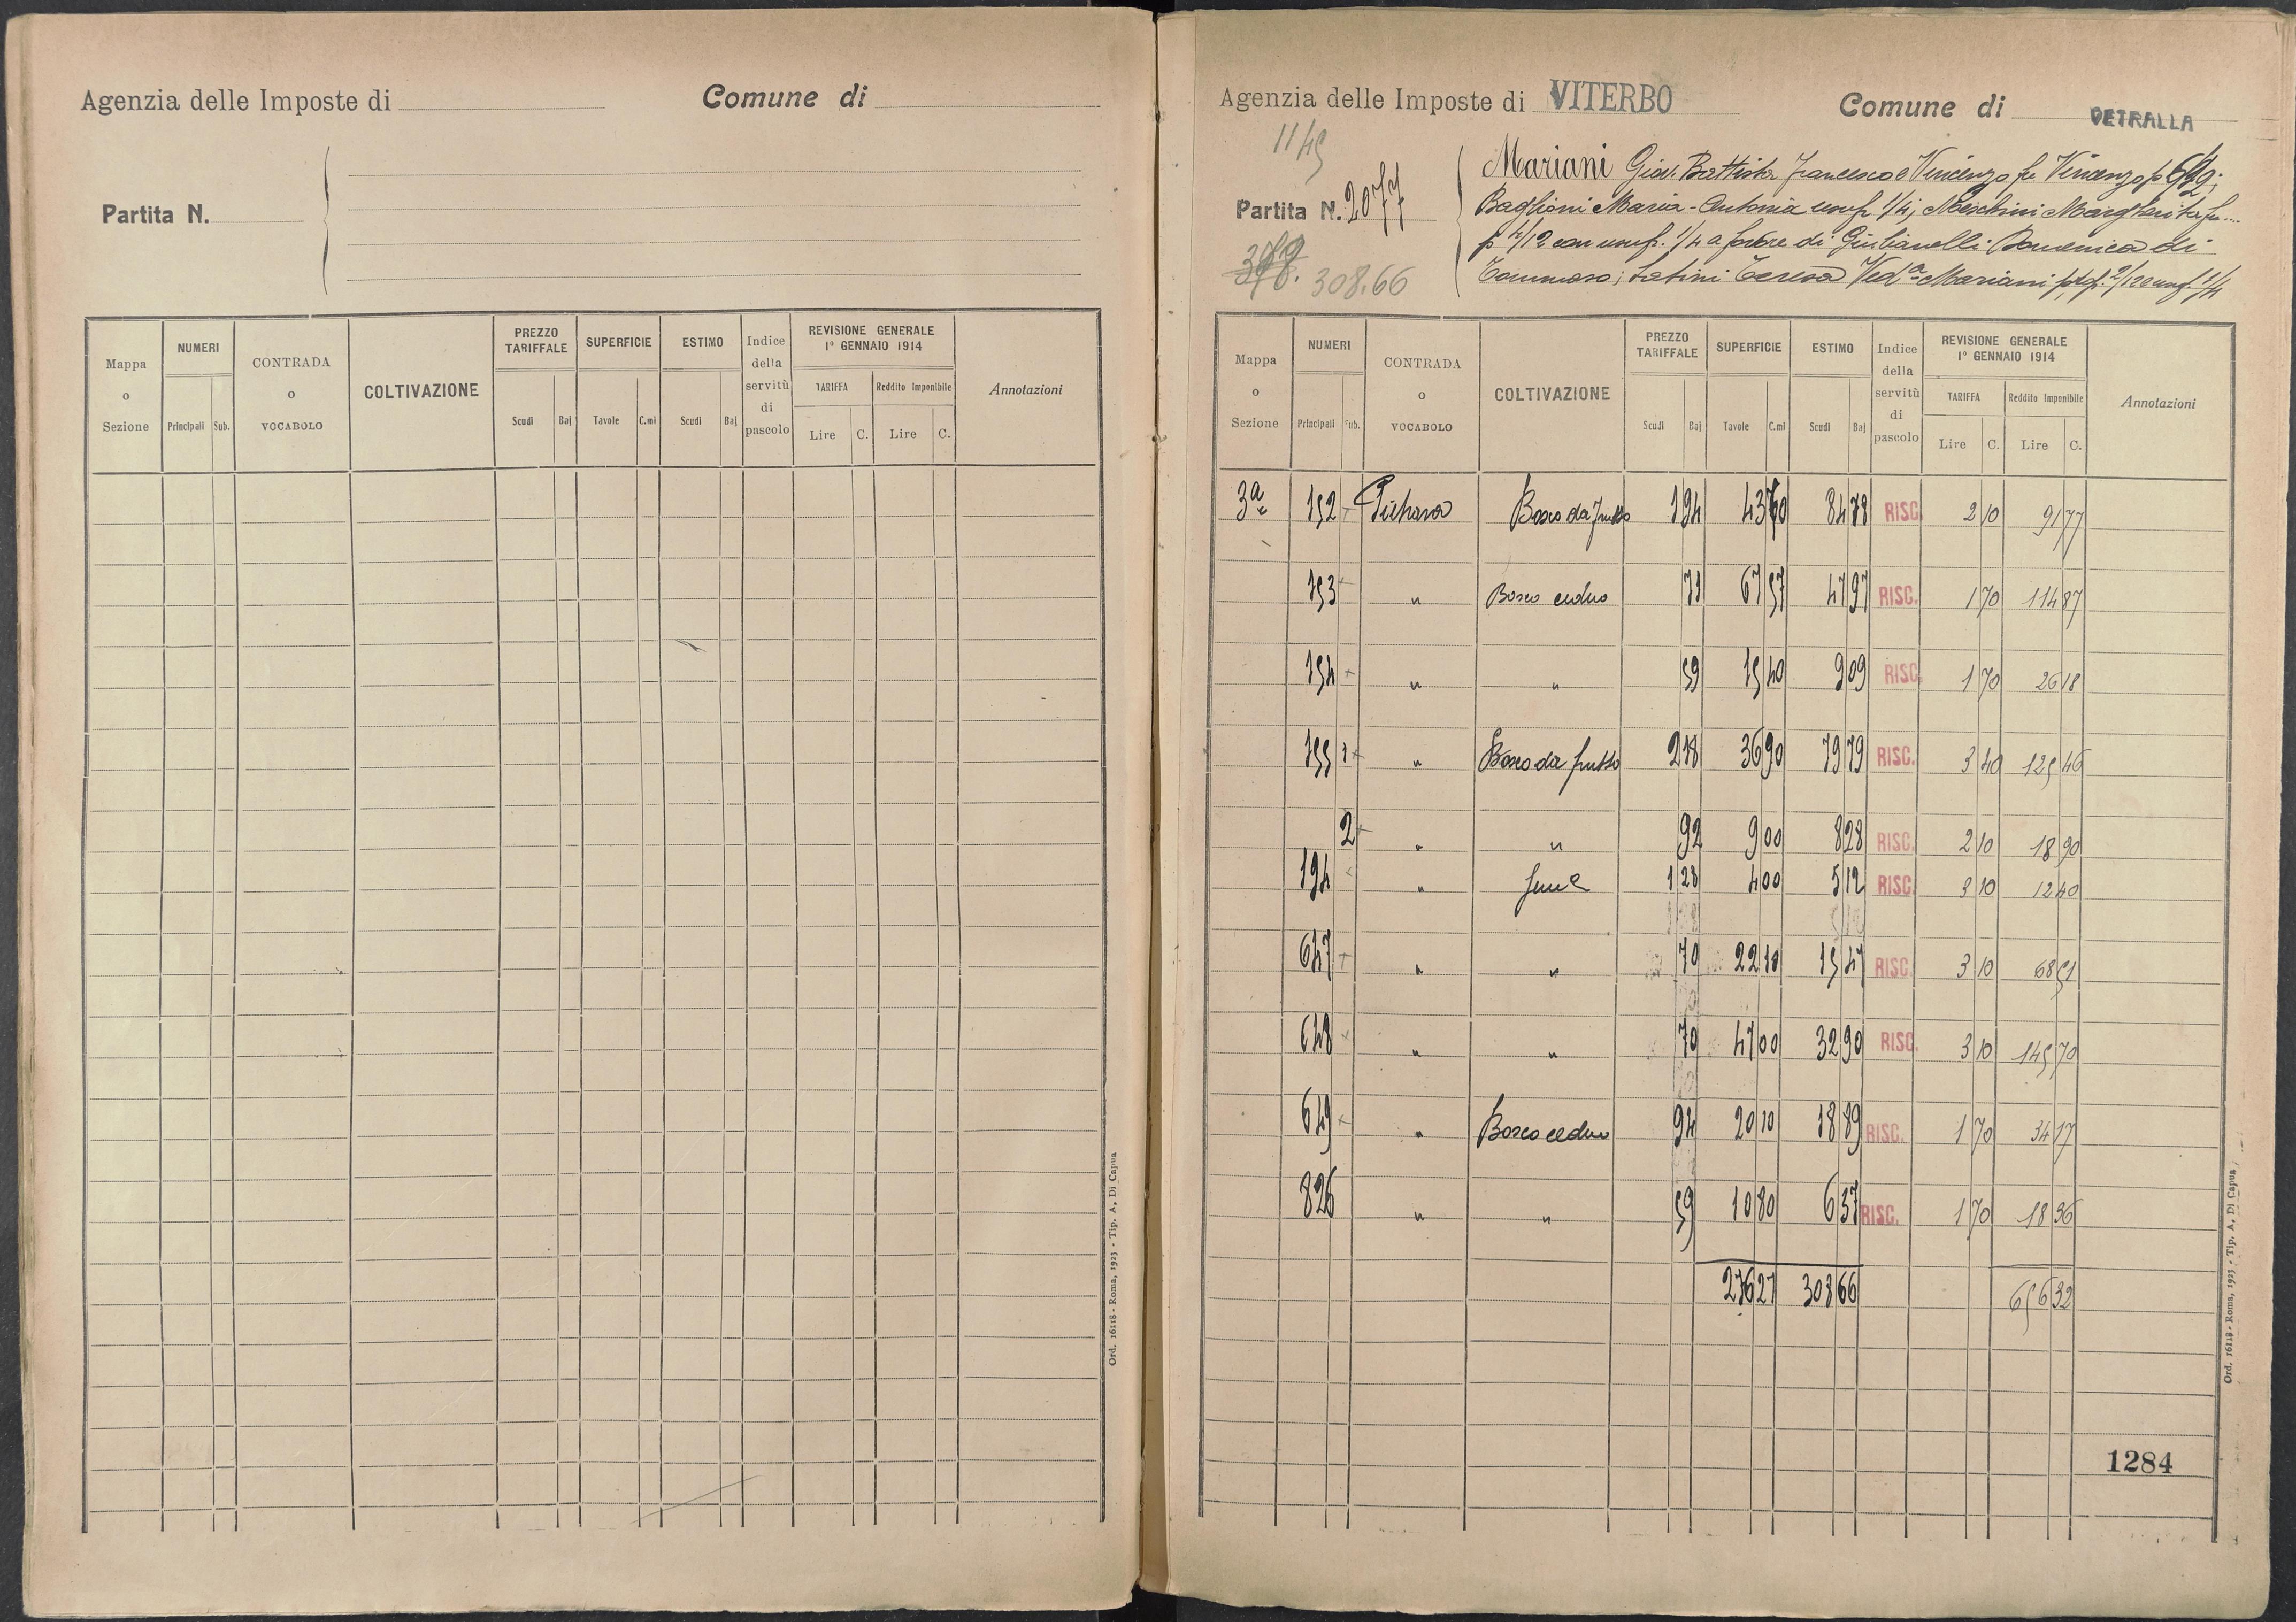 Agenzia delle Imposte di
Comune di
Partita N.
Mappa o Sezione
NUMERI
Principali Sub.
CONTRADA o VOCABOLO
COLTIVAZIONE
PREZZO TARIFFALE
Scudi Baj
SUPERFICIE
Tavole C.mi
ESTIMO
Scudi Baj
Indice della servitù di pascolo
REVISIONE GENERALE 1° GENNAIO 1914
TARIFFA
Lire C.
Reddito Imponibile
Lire C.
Annotazioni
Ord. 16118 - Roma, 1923 - Tip. A. Di Capua
Agenzia delle Imposte di VITERBO
Comune di VETRALLA
1145
Partita N. 2077
308.66
Mariani Giov. Battista Francesco e Vincenzo fu Vincenzo p
Baglioni Maria-Antonia usuf. 1/4; Meschini Margherita fu ....
p 4/12 con usuf. 1/4 a favore di Giulianelli Domenica di
Tommaso; Latini Teresa Ved.a Mariani 2/12 e usuf. 1/4
Mappa o Sezione
NUMERI
Principali Sub.
CONTRADA o VOCABOLO
COLTIVAZIONE
PREZZO TARIFFALE
Scudi Baj
SUPERFICIE
Tavole C.mi
ESTIMO
Scudi Baj
Indice della servitù di pascolo
REVISIONE GENERALE 1° GENNAIO 1914
TARIFFA
Lire C.
Reddito Imponibile
Lire C.
Annotazioni
3a 152 Bosco da frutto 1 94 43 70 84 78 RISC. 2 10 91 77
153 " Bosco ceduo 71 67 57 47 97 RISC. 1 70 114 87
154 " " 59 15 40 9 09 RISC. 1 70 26 18
155 1 " Bosco da frutto 2 18 36 90 79 79 RISC. 3 40 125 46
2 " " 92 9 00 8 28 RISC. 2 10 18 90
194 " Sem.e 1 28 4 00 5 12 RISC. 3 10 12 40
647 " " 70 22 10 15 47 RISC. 3 10 68 51
648 " " 70 47 00 32 90 RISC. 3 10 145 70
649 " Bosco ceduo 94 20 10 18 89 RISC. 1 70 34 17
826 " " 59 10 80 6 37 RISC. 1 70 18 36
276 27 308 66 656 32
1284
Ord. 16118 - Roma, 1923 - Tip. A. Di Capua